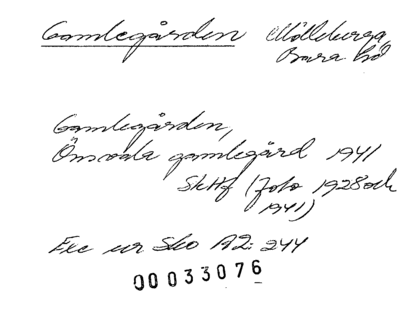 Gamlegården Mölleberga,
Bara hd
Gamlegården,
Önsvala gamlegård 1941
SkHf (foto 1928 och
1941)
Exc ur Sko A2: 244
00033076